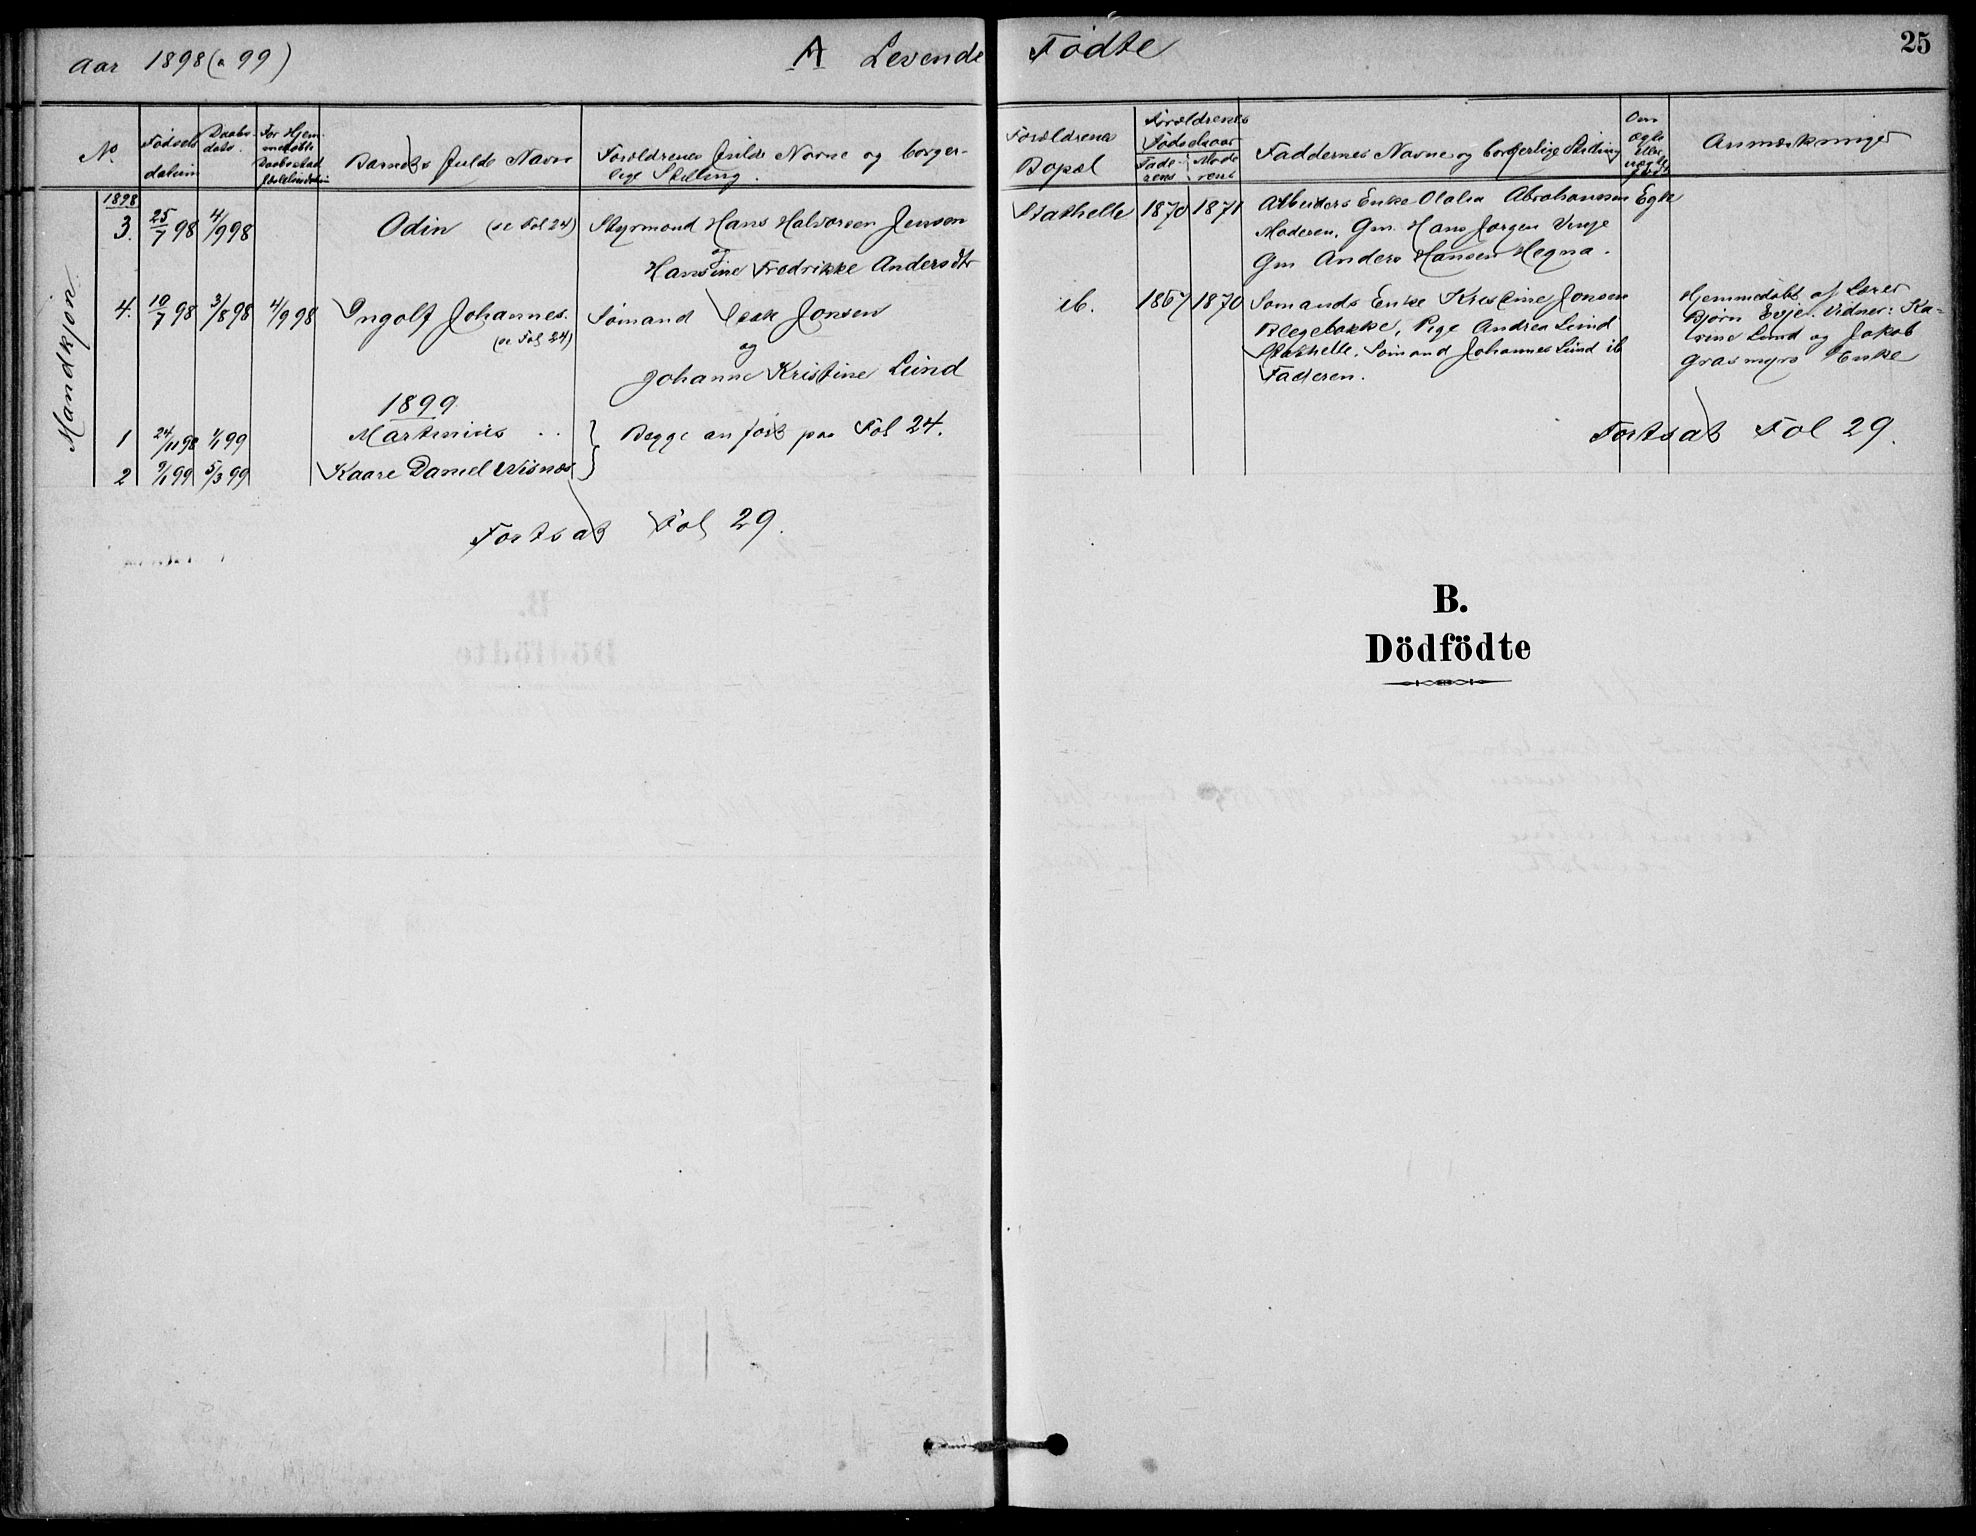 Aar 1898 (a 99)
A Levende Födte
25
No.
Födsels datum
Daabs dato.
For Hjemmedöbte Daabsstad
Barnets fulde Navn
Forældrenes fulde Navne og borgerlige Stilling.
Forældrenes Bopæl
Forældrenes Födselsaar
Faderens
Moderens
Faddernes Navne og borgerlige Stilling
Om Ægte Eller uægte födt
Anmærkninger
Mandkjön.
1898
3. 25/7 98 4/9 98 Odin (se Fol 24) Styrmand Hans Halvorsen Jensen
og
Hansine Fredrikke Andersdtr
Stathelle 1870 1871 Arbeiders Enke Olalia Abrahamsen Egte
Moderen. Gm. Hans Jörgen Vinje
Gm Anders Hansen Hegna.
4. 10/7 98 3/8 98 4/9 98 Ingolf Johannes.
(se Fol 24)
Sömand Isak Jonsen
og
Johanne Kristine Lund
ib. 1867 1870 Sömands Enke Kristine Jonsen
Blegebakke, Pige Andrea Lund
Stathelle. Sömand Johannes Lund ib
Faderen.
Hjemmedöbt af Lærer
Bjørn Evje. Vidner: Ka-
trine Lund og Jakob
Grasmyrs Enke
1899
1 24/11 98 1/1 99 Martinius . .
2 9/1 99 5/3 99 Kaare Daniel Wisnæs
Begge anført paa Fol 24.
Fortsat Fol 29.
Fortsat Fol 29.
B.
Dödfödte